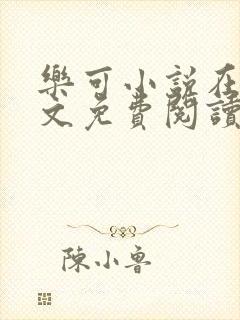 樂可小說在
文免費閱讀
陳小魯